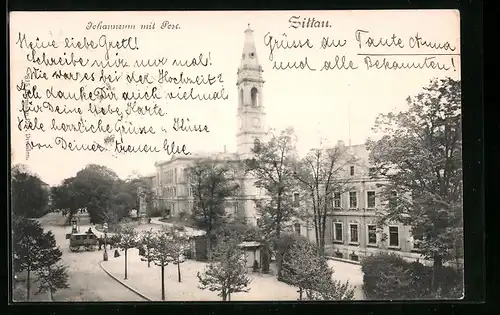 Johanneum mit Post.
Zittau.
Meine liebe Gretl!
Schreibe mir nur mal!
Wie war es bei der Hochzeit?
Ich danke Dir auch vielmal
für Deine liebe Karte.
Viele herzliche Grüsse u. Küsse
von Deiner treuen Else
Grüsse an Tante Anna
und alle Bekannten!